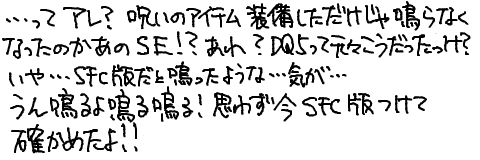 …って アレ? 呪いのアイテム装備しただけじゃ鳴らなく
なったのかあのSE!? あれ? DQ5って元々こうだったっけ?
いや…SFC版だと鳴ったような…気が…
うん鳴るよ鳴る鳴る! 思わず今SFC版つけて
確かめたよ!!